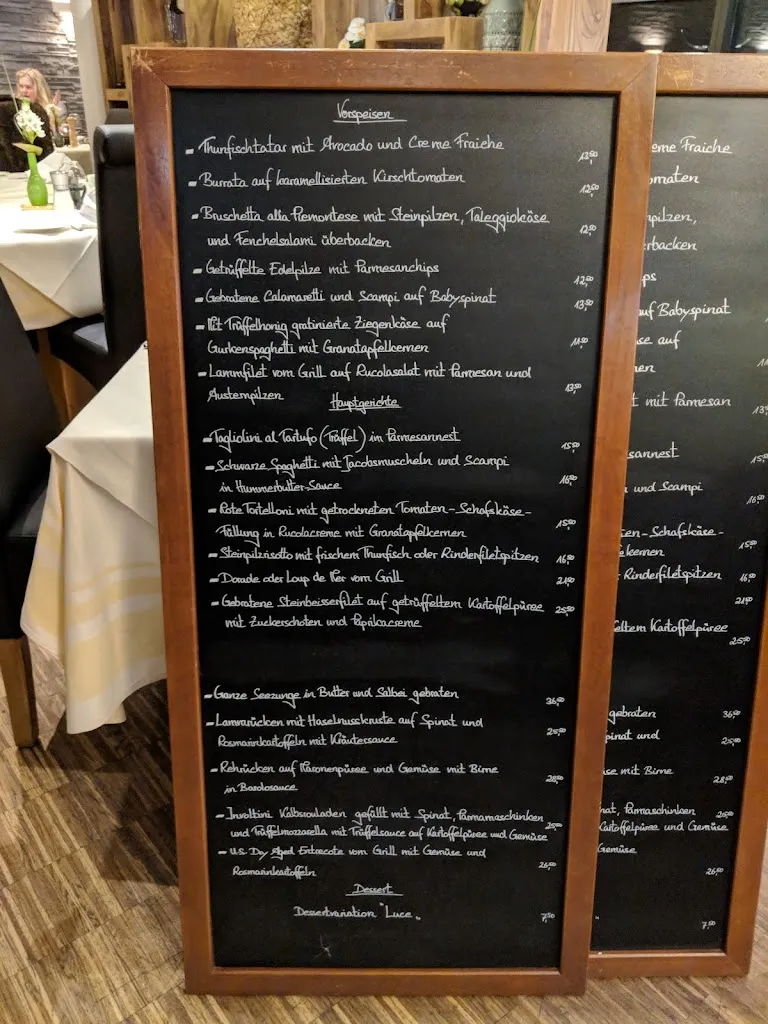 Vorspeisen
- Thunfischtatar mit Avocado und Creme Fraiche 13,50
- Burrata auf karamellisierten Kirschtomaten 12,50
- Bruschetta alla Piemontese mit Steinpilzen, Taleggiokäse 12,50
und Fenchelsalami überbacken
- Getrüffelte Edelpilze mit Parmesanchips 12,50
- Gebratene Calamaretti und Scampi auf Babyspinat 13,50
- Mit Trüffelhonig gratinierte Ziegenkäse auf
Gurkenspaghetti mit Granatapfelkernen 11,50
- Lammfilet vom Grill auf Rucolasalat mit Parmesan und
Austernpilzen 13,50
Hauptgerichte
- Tagliolini al Tartufo (Trüffel) im Parmesannest 15,50
- Schwarze Spaghetti mit Jacobsmuscheln und Scampi
in Hummerbutter-Sauce 16,00
- Rote Tortelloni mit getrockneten Tomaten-Schafskäse-
Füllung in Rucolacreme mit Granatapfelkernen 15,50
- Steinpilzrisotto mit frischem Thunfisch oder Rinderfiletspitzen 16,50
- Dorade oder Loup de Mer vom Grill 21,50
- Gebratene Steinbeisserfilet auf getrüffeltem Kartoffelpüree 25,50
mit Zuckerschoten und Paprikacreme
- Ganze Seezunge in Butter und Salbei gebraten 36,00
- Lammrücken mit Haselnusskruste auf Spinat und 25,00
Rosmarinkartoffeln mit Kräutersauce
- Rehrücken auf Maronenpüree und Gemüse mit Birne 28,00
in Barolosauce
- Involtini Kalbsrouladen gefüllt mit Spinat, Parmaschinken
und Trüffelmozzarella mit Trüffelsauce auf Kartoffelpüree und Gemüse
- U.S. Dry Aged Entrecote vom Grill mit Gemüse und
Rosmarinkartoffeln 26,00
Dessert
Dessertvariation "Luce" 7,50
eme Fraiche
omaten
npilzen,
rbacken
ps
auf Babyspinat
se auf
en
t mit Parmesan
sannest
und Scampi
ten-Schafskäse-
elkernen
Rinderfiletspitzen
feltem Kartoffelpüree
gebraten 36,00
pinat und
25,00
se mit Birne
28,00
nat, Parmaschinken
Kartoffelpüree und Gemüse
Gemüse
26,00
7,50